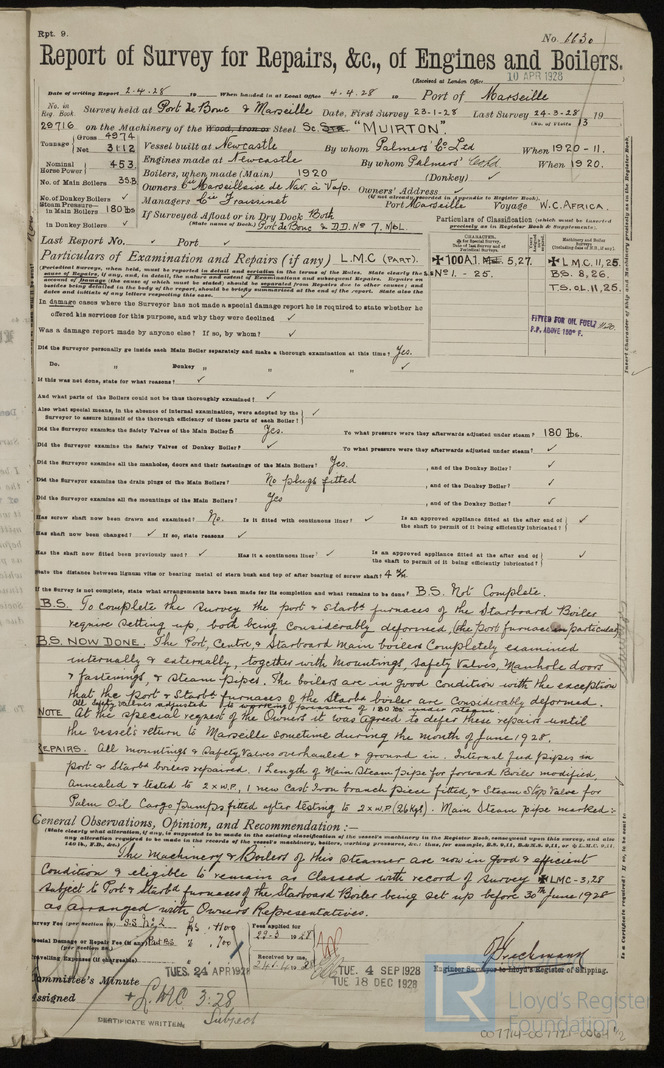 Rpt. 9.
No. 6630
Report of Survey for Repairs, &c., of Engines and Boilers.
(Received at London Office
10 APR 1928
Date of writing Report 2-4-28 19 When handed in at Local Office 4-4-28 19 Port of Marseille
No. in Reg. Book. Survey held at Port de Bouc & Marseille Date, First Survey 23-1-28 Last Survey 24-3-28 19
(No. of Visits 13
29716 on the Machinery of the Wood, Iron or Steel Sc. Str "MUIRTON".
Tonnage Gross 4974 Net 3112
Vessel built at Newcastle By whom Palmers' Co Ltd When 1920-11.
Nominal Horse Power 453
Engines made at Newcastle By whom Palmers' Co Ltd When 1920.
No. of Main Boilers 3SB
Boilers, when made (Main) 1920 (Donkey) ✓
Owners Cie Marseillaise de Nav. à Vap. Owners' Address ✓
(if not already recorded in Appendix to Register Book).
No. of Donkey Boilers ✓
Managers Cie Fraissinet Port Marseille Voyage W.C. AFRICA.
Steam Pressure in Main Boilers 180 lbs
in Donkey Boilers ✓
If Surveyed Afloat or in Dry Dock Both
(State name of Dock.) Port de Bouc & D.D. No 7. Mbl.
Particulars of Classification (which must be inserted precisely as in Register Book & Supplements).
Last Report No. ✓ Port ✓
Particulars of Examination and Repairs (if any) L.M.C (PART).
CHARACTER.
Machinery and Boiler Surveys
✠100A1. 5,27.
SSNo 1. - 25.
✠ L.M.C. 11,25.
B.S. 8,26.
T.S. CL. 11,25.
FITTED FOR OIL FUEL 11.20
F.P. ABOVE 150° F.
In damage cases where the Surveyor has not made a special damage report he is required to state whether he
offered his services for this purpose, and why they were declined ✓
Was a damage report made by anyone else? If so, by whom? ✓
Did the Surveyor personally go inside each Main Boiler separately and make a thorough examination at this time? Yes.
Do. " Donkey " " " " ✓
If this was not done, state for what reasons? ✓
And what parts of the Boilers could not be thus thoroughly examined? ✓
Also what special means, in the absence of internal examination, were adopted by the
Surveyor to assure himself of the thorough efficiency of those parts of each Boiler? ✓
Did the Surveyor examine the Safety Valves of the Main Boilers? Yes. To what pressure were they afterwards adjusted under steam? 180 lbs.
Did the Surveyor examine the Safety Valves of Donkey Boiler? ✓ To what pressure were they afterwards adjusted under steam? ✓
Did the Surveyor examine all the manholes, doors and their fastenings of the Main Boilers? Yes. , and of the Donkey Boiler? ✓
Did the Surveyor examine the drain plugs of the Main Boilers? No plugs fitted , and of the Donkey Boiler? ✓
Did the Surveyor examine all the mountings of the Main Boilers? Yes , and of the Donkey Boiler? ✓
Has screw shaft now been drawn and examined? No. Is it fitted with continuous liner? ✓ Is an approved appliance fitted at the after end of the shaft to permit of it being efficiently lubricated? ✓
Has shaft now been changed? ✓ If so, state reasons ✓
Has the shaft now fitted been previously used? ✓ Has it a continuous liner? ✓ Is an approved appliance fitted at the after end of the shaft to permit of it being efficiently lubricated? ✓
State the distance between lignum vitæ or bearing metal of stern bush and top of after bearing of screw shaft?
If the Survey is not complete, state what arrangements have been made for its completion and what remains to be done? B.S. Not Complete.
B.S. To complete the survey the port & starbd furnaces of the Starboard Boiler
require setting up, both being considerably deformed, (the Port furnace in particular)
B.S. NOW DONE. The Port, Centre, & Starboard main boilers completely examined
internally & externally, together with mountings, safety valves, manhole doors
& fastenings, & steam pipes. The boilers are in good condition with the exception
that the port & starbd furnaces of the starbd boiler are considerably deformed.
All safety valves adjusted to working pressure of 180 lbs under steam.
NOTE At the special request of the Owners it was agreed to defer these repairs until
the vessel's return to Marseille sometime during the month of June 1928.
REPAIRS. All mountings & safety valves overhauled & ground in. Internal feed pipes in
port & starbd boilers repaired. 1 length of Main Steam pipe for forward Boiler modified,
annealed & tested to 2 x W.P. 1 new cast iron branch piece fitted, & Steam Stop Valve for
Palm Oil Cargo pumps fitted after testing to 2 x W.P. (26 Kgs). Main Steam pipe marked:-
General Observations, Opinion, and Recommendation:—
The Machinery & Boilers of this steamer are now in good & efficient
condition & eligible to remain as classed with record of survey ✠LMC-3,28
subject to Port & Starbd furnaces of the Starboard Boiler being set up before 30th June 1928
as arranged with Owners Representatives.
Survey Fee (per Section 29)
Special Damage or Repair Fee (if any)
(per Section 29.)
Travelling Expenses (if chargeable)
Fees applied for
Received by me,
Engineer Surveyor to Lloyd's Register of Shipping.
Committee's Minute
TUES. 24 APR 1928
TUE. 4 SEP 1928
TUE 18 DEC 1928
Assigned + LMC 3.28
Subject
CERTIFICATE WRITTEN.
LR Lloyd's Register Foundation